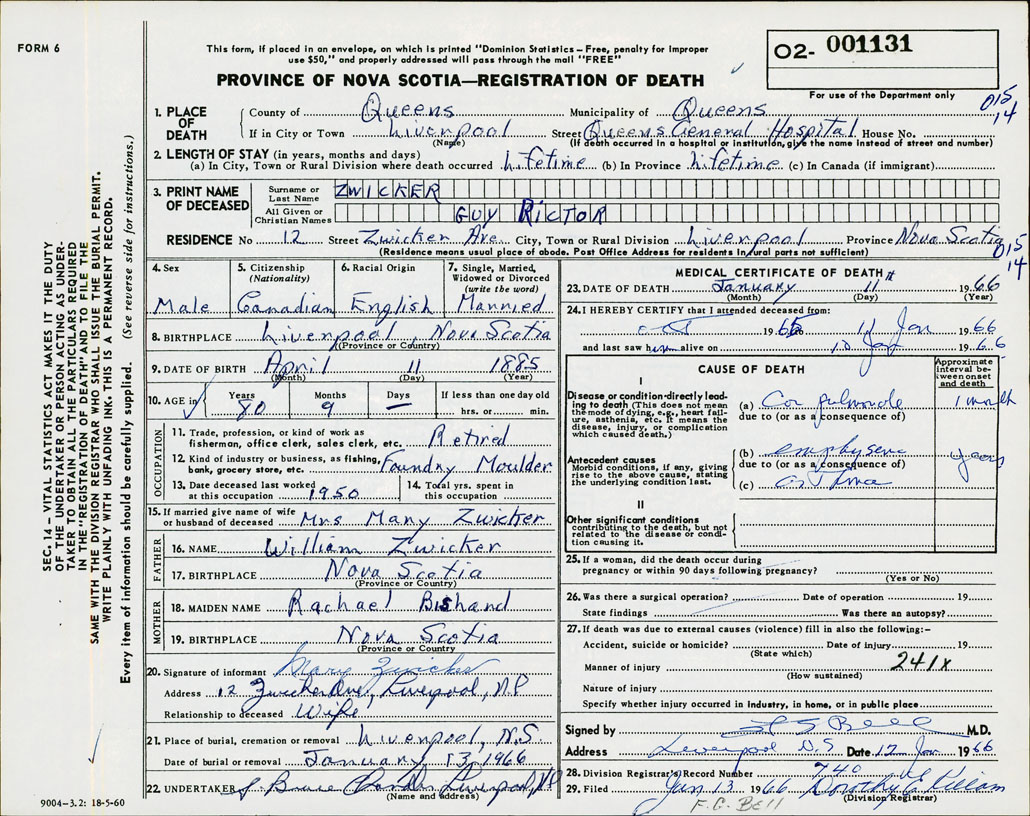 FORM 6
This form, if placed in an envelope, on which is printed "Dominion Statistics – Free, penalty for improper
use $50," and properly addressed will pass through the mail "FREE"
02- 001131
For use of the Department only
PROVINCE OF NOVA SCOTIA—REGISTRATION OF DEATH
015
14
1. PLACE OF DEATH
County of Queens Municipality of Queens
If in City or Town Liverpool Street Queens General Hospital House No.
(Name) (If death occurred in a hospital or institution, give the name instead of street and number)
2. LENGTH OF STAY (in years, months and days)
(a) In City, Town or Rural Division where death occurred Lifetime (b) In Province Lifetime (c) In Canada (if immigrant)
3. PRINT NAME OF DECEASED
Surname or Last Name ZWICKER
All Given or Christian Names GUY RICTOR
RESIDENCE No 12 Street Zwicker Ave. City, Town or Rural Division Liverpool Province Nova Scotia
(Residence means usual place of abode. Post Office Address for residents in rural parts not sufficient)
015
14
4. Sex Male
5. Citizenship (Nationality) Canadian
6. Racial Origin English
7. Single, Married, Widowed or Divorced (write the word) Married
8. BIRTHPLACE Liverpool, Nova Scotia
(Province or Country)
9. DATE OF BIRTH April 11 1885
(Month) (Day) (Year)
10. AGE in Years 80 Months 9 Days — If less than one day old hrs. or min.
OCCUPATION
11. Trade, profession, or kind of work as
fisherman, office clerk, sales clerk, etc. Retired
12. Kind of industry or business, as fishing,
bank, grocery store, etc. Foundry Moulder
13. Date deceased last worked
at this occupation 1950
14. Total yrs. spent in
this occupation
15. If married give name of wife
or husband of deceased Mrs Mary Zwicker
FATHER
16. NAME William Zwicker
17. BIRTHPLACE Nova Scotia
(Province or Country)
MOTHER
18. MAIDEN NAME Rachael
19. BIRTHPLACE Nova Scotia
(Province or Country)
20. Signature of informant Mary Zwicker
Address 12 Zwicker Ave, Liverpool, N.S.
Relationship to deceased Wife
21. Place of burial, cremation or removal Liverpool, N.S.
Date of burial or removal January 13, 1966
22. UNDERTAKER Liverpool, NS
(Name and address)
MEDICAL CERTIFICATE OF DEATH
23. DATE OF DEATH January 11 1966
(Month) (Day) (Year)
24. I HEREBY CERTIFY that I attended deceased from:
Oct 1965 11 Jan 1966
and last saw him alive on 10 Jan 1966
CAUSE OF DEATH
Approximate interval between onset and death
I
Disease or condition directly leading to death (This does not mean
the mode of dying, e.g., heart failure, asthenia, etc. It means the
disease, injury, or complication
which caused death.)
(a) Cor pulmonale 1 month
due to (or as a consequence of)
Antecedent causes
Morbid conditions, if any, giving
rise to the above cause, stating
the underlying condition last.
(b) emphysema years
due to (or as a consequence of)
(c)
II
Other significant conditions
contributing to the death, but not
related to the disease or condition causing it.
25. If a woman, did the death occur during
pregnancy or within 90 days following pregnancy?
(Yes or No)
26. Was there a surgical operation? Date of operation 19
State findings Was there an autopsy?
27. If death was due to external causes (violence) fill in also the following:–
Accident, suicide or homicide? Date of injury 19
(State which)
Manner of injury 241x
(How sustained)
Nature of injury
Specify whether injury occurred in industry, in home, or in public place
Signed by Bell M.D.
Address Liverpool N.S Date 12 Jan 1966
28. Division Registrar's Record Number 740
29. Filed Jan 13 1966 Dorothy E Killam
(Division Registrar)
F.G. BELL
9004-3.2: 18-5-60
SEC. 14 – VITAL STATISTICS ACT MAKES IT THE DUTY
OF THE UNDERTAKER OR PERSON ACTING AS UNDER-
TAKER TO OBTAIN ALL THE PARTICULARS REQUIRED
IN THE "REGISTRATION OF DEATH" AND TO FILE THE
SAME WITH THE DIVISION REGISTRAR WHO SHALL ISSUE THE BURIAL PERMIT.
WRITE PLAINLY WITH UNFADING INK. THIS IS A PERMANENT RECORD.
Every item of information should be carefully supplied. (See reverse side for instructions.)